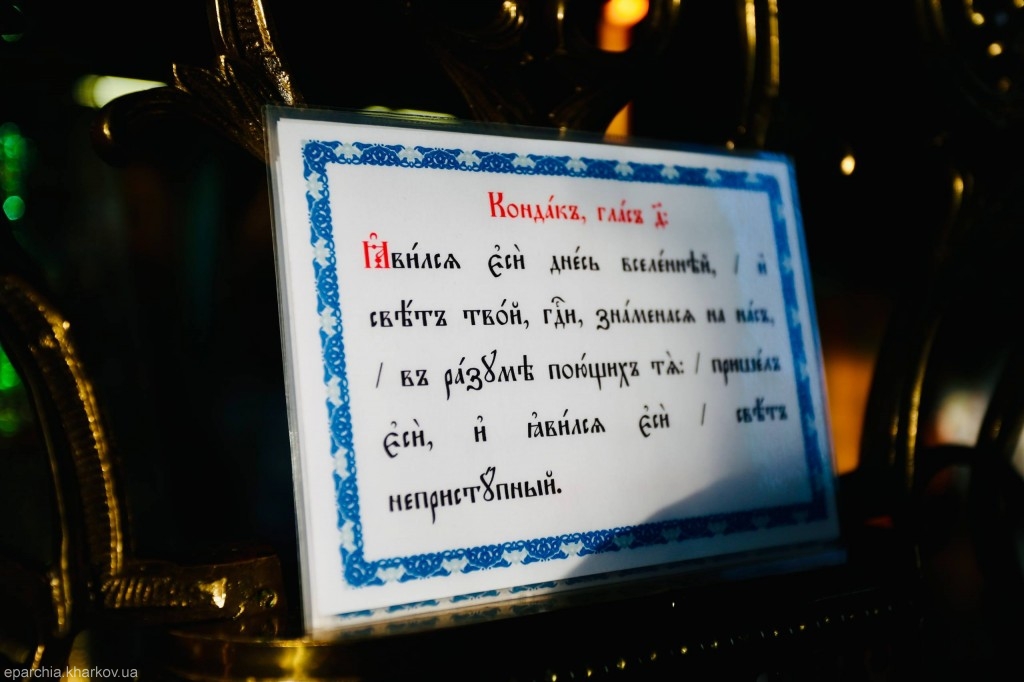 Конда́къ, гла́съ д҃:
Ꙗ҆ви́лсѧ є҆сѝ дне́сь вселе́ннѣй, / и҆
свѣ́тъ тво́й, гдⷭ҇и, зна́менасѧ на на́съ,
/ въ ра́зꙋмѣ пою́щихъ тѧ̀: / прише́лъ
є҆сѝ, и҆ ꙗ҆ви́лсѧ є҆сѝ / свѣ́тъ
непристꙋ́пный.
eparchia.kharkov.ua